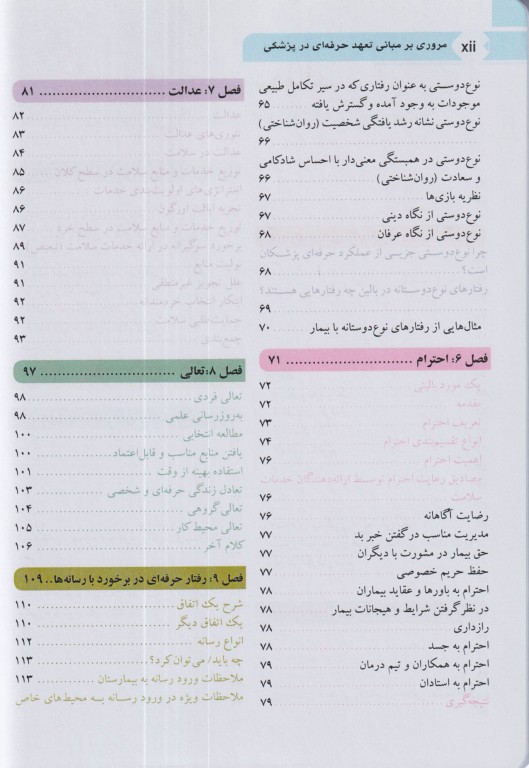 xii مروری بر مبانی تعهد حرفه‌ای در پزشکی
نوع‌دوستی به عنوان رفتاری که در سیر تکامل طبیعی
موجودات به وجود آمده و گسترش یافته ۶۵
نوع‌دوستی نشانه رشد یافتگی شخصیت (روان‌شناختی)
۶۶
نوع‌دوستی در همبستگی معنی‌دار با احساس شادکامی
و سعادت (روان‌شناختی) ۶۶
نظریه بازی‌ها ۶۷
نوع‌دوستی از نگاه دینی ۶۷
نوع‌دوستی از نگاه عرفان ۶۸
چرا نوع‌دوستی جزیی از عملکرد حرفه‌ای پزشکان
است؟ ۶۸
رفتارهای نوع‌دوستانه در بالین چه رفتارهایی هستند؟
۶۹
مثال‌هایی از رفتارهای نوع‌دوستانه با بیمار ۷۰
فصل ۶: احترام ۷۱
یک مورد بالینی ۷۲
مقدمه ۷۲
تعریف احترام ۷۳
انواع تقسیم‌بندی احترام ۷۴
اهمیت احترام ۷۶
مصادیق رعایت احترام توسط ارائه‌دهندگان خدمات
سلامت ۷۶
رضایت آگاهانه ۷۶
مدیریت مناسب در گفتن خبر بد ۷۷
حق بیمار در مشورت با دیگران ۷۷
حفظ حریم خصوصی ۷۷
احترام به باورها و عقاید بیماران ۷۸
در نظر گرفتن شرایط و هیجانات بیمار ۷۸
رازداری ۷۸
احترام به جسد ۷۸
احترام به همکاران و تیم درمان ۷۹
احترام به استادان ۷۹
نتیجه‌گیری ۷۹
فصل ۷: عدالت ۸۱
عدالت ۸۲
تئوری‌های عدالت ۸۳
عدالت در سلامت ۸۴
توزیع خدمات و منابع سلامت در سطح کلان ۸۵
استراتژی‌های اولویت‌بندی خدمات ۸۶
تجربه ایالت اورگون ۸۶
توزیع خدمات و منابع سلامت در سطح خرد ۸۷
برخورد سوگیرانه در ارائه خدمات سلامت (تبعیض) ۸۹
منابع ۹۱
علل تجویز غیرمنطقی ۹۱
ابتکار انتخاب خردمندانه ۹۲
حمایت‌طلبی سلامت ۹۲
جمع‌بندی ۹۳
فصل ۸: تعالی ۹۷
تعالی فردی ۹۸
به‌روزرسانی علمی ۹۸
مطالعه انتخابی ۱۰۰
یافتن منابع مناسب و قابل‌اعتماد ۱۰۰
استفاده بهینه از وقت ۱۰۱
تعادل زندگی حرفه‌ای و شخصی ۱۰۳
تعالی گروهی ۱۰۴
تعالی محیط کار ۱۰۵
کلام آخر ۱۰۶
فصل ۹: رفتار حرفه‌ای در برخورد با رسانه‌ها.. ۱۰۹
شرح یک اتفاق ۱۱۰
یک اتفاق دیگر ۱۱۰
انواع رسانه ۱۱۲
چه باید/ می‌توان کرد؟ ۱۱۳
ملاحظات ورود رسانه به بیمارستان ۱۱۳
ملاحظات ویژه در ورود رسانه به محیط‌های خاص